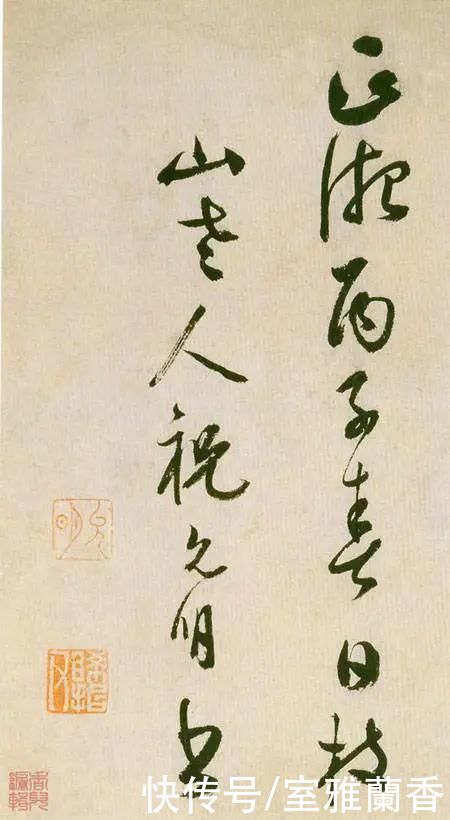 正德丙子春日枝
山老人祝允明書
允明
快传号/室雅蘭香